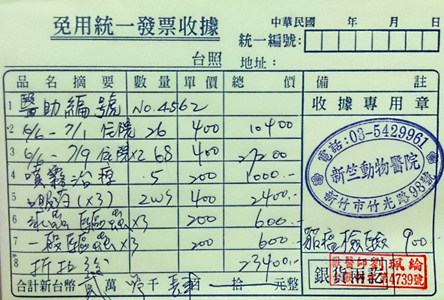 免用統一發票收據
中華民國 年 月 日
台照
統一編號:
地址:
品名摘要 數量 單價 總價 備註
1 醫助編號 No.4562
收據專用章
2 6/6-7/1 住院 26 400 10400
3 6/6-7/9 住院x2 68 400 27200
電話:03-5429961
新竺動物醫院
新竹市竹光路98號
4 噴霧治療 5 200 1000.-
5 (x3) 2ws 400 2400.-
6 驅蟲x3 200 600.-
7 一般驅蟲x3 200 600.-
檢驗 900.-
8 折扣 23400.-
銀貨兩訖
獸醫師劉
4739號
合計新台幣 萬 仟 佰 拾 元整